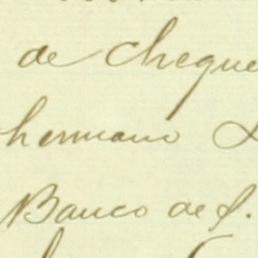 de cheque
hermano
Banco de